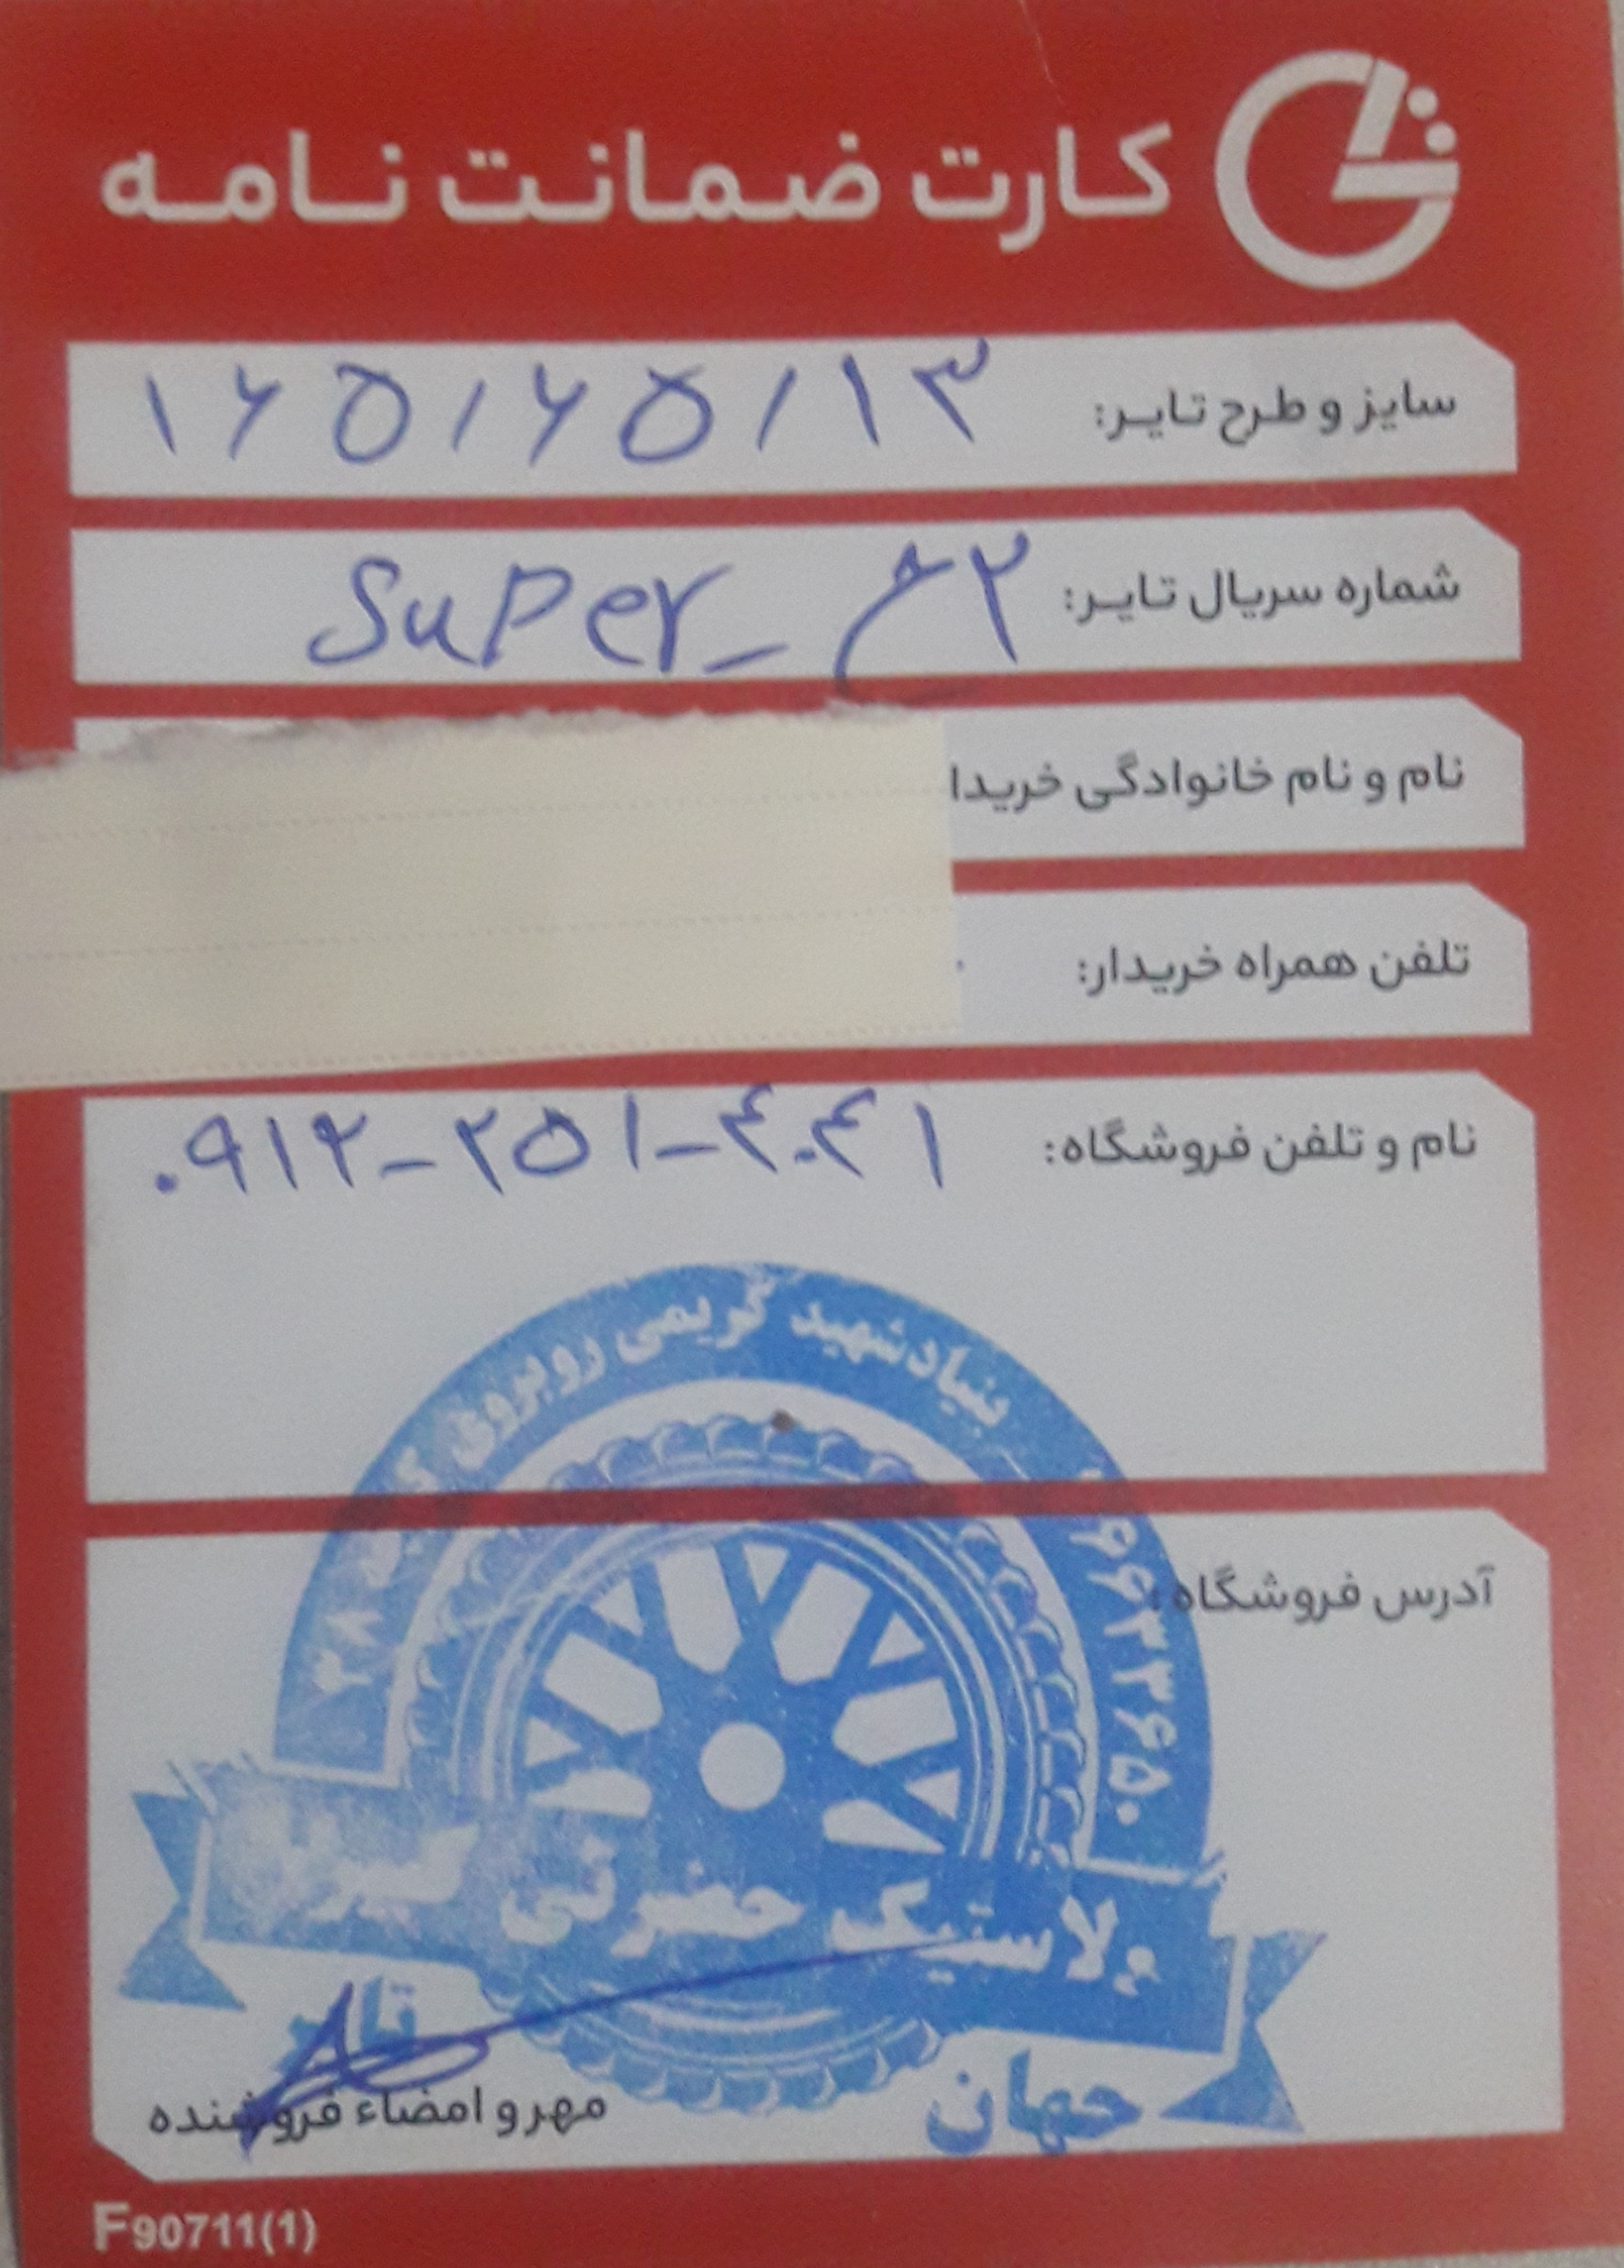 کارت ضمانت نامه
سایز و طرح تایر: ۱۶۵/۶۵/۱۳
شماره سریال تایر: Super_ ۲ح
نام و نام خانوادگی خریدا
تلفن همراه خریدار:
نام و تلفن فروشگاه: ۰۹۱۲-۲۵۱-۴۰۴۱
بنیاد شهید کریمی روبروی
۶۶۲۳۶۵۰
آدرس فروشگاه:
لاستیک حضرتی
تایر
جهان
مهر و امضاء فروشنده
F90711(1)